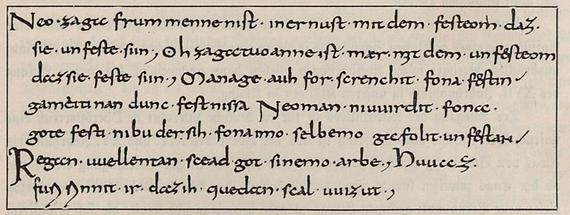 Neo · zaga frummenne nist · iner nust · mit dem · festeom · daz ·
sie · unfeste · sin , Oh zagatuoanne · ist · mær · mit dem · unfesteom
daz sie · feste sin , Manage · auh for · screnchit · fona · festin
gameiti nan dunc · festnissa Neoman · niuuirdit · fona ·
gote festi · nibu der sih · fona imo · selbemo gafolit · unfestan
Regan · uuellentan · scead · got · sinemo · arbe , Huuaz ·
ir · daz · ih · quedan · scal · uuizut ,